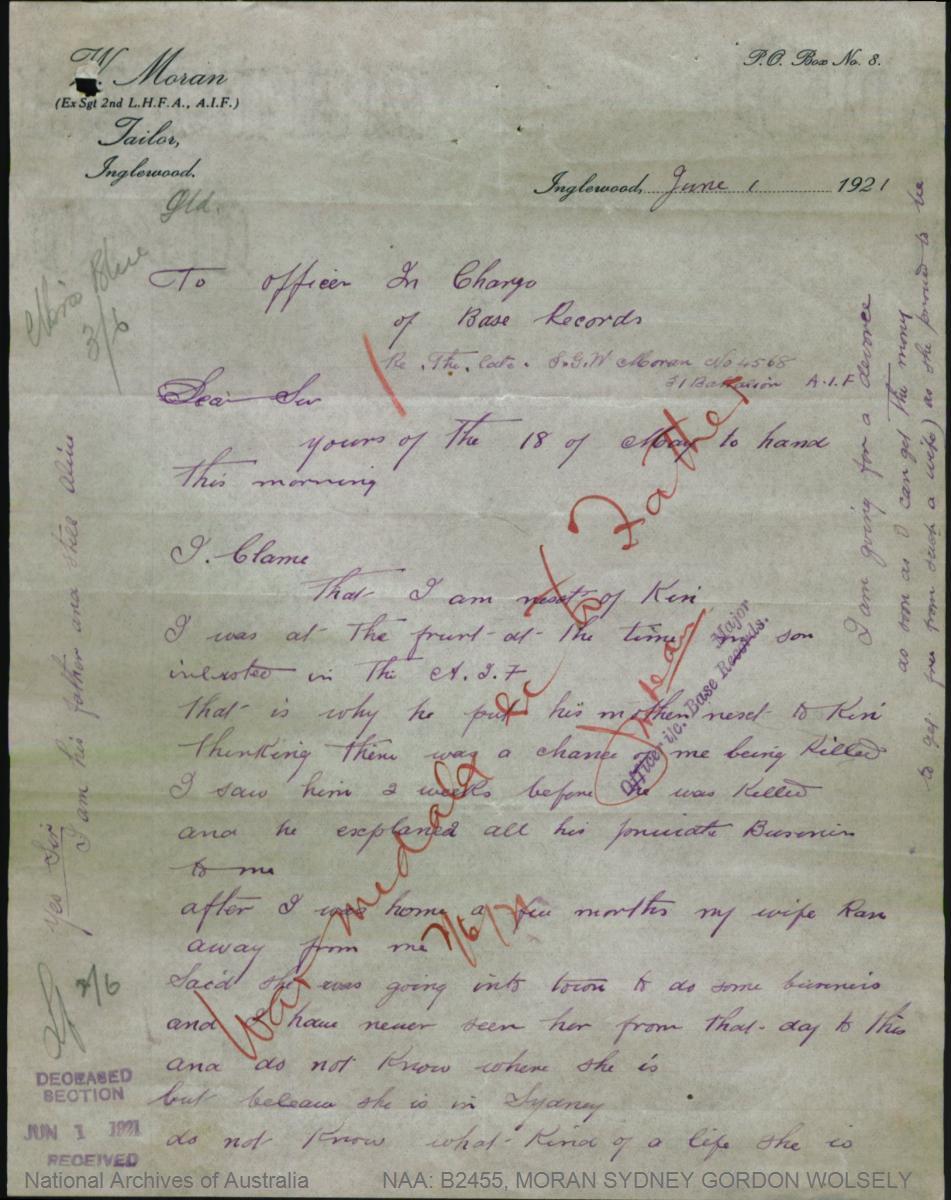 W. Moran
(Ex Sgt 2nd L.H.F.A., A.I.F.)
Tailor,
Inglewood.
Qld.
P.O. Box No. 8.
Inglewood, June 1 1921
3/6
To officer In Charge
of Base Records
Re. The late. S.G.W Moran No 4568
31 Battalion A.I.F
Dear Sir
yours of the 18 of May to hand
this morning
I. Clame
That I am nesct of Kin
I was at the frunt at the time my son
inlested in the A.I.F
That is why he put his mother nesct to Kin
Thinking there was a chance of me being Killed
I saw him 2 weeks before he was Killed
and he explaned all his private Buseniss
to me
after I was home a few months my wife Ran
away from me
Said she was going into town to do some buseniss
and I have never seen her from that day to this
and do not Know where she is
but beleave she is in Sydney
do not Know what Kind of a life she is
I am going for a devorce
as soon as I can get the mony
to get free from such a wife) as she proved to be
Yes Sir
I am his father and still alive
War medals etc to Father
7/6/21
Major
Officer i/c. Base Records.
2/6
DECEASED
SECTION
JUN 1 1921
RECEIVED
National Archives of Australia
NAA: B2455, MORAN SYDNEY GORDON WOLSELY